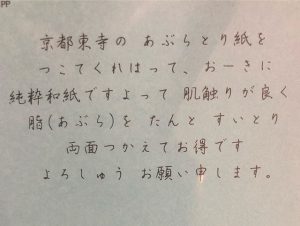 PP
京都東寺の あぶらとり紙を
つこてくれはって、おーきに
純粋和紙ですよって 肌触りが良く
脂(あぶら)を たんと すいとり
両面つかえてお得です
よろしゅう お願い申します。